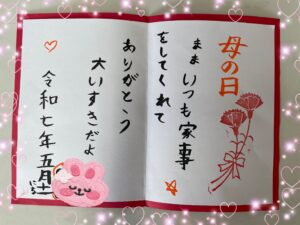 母の日
まま いつも家事
をしてくれて
ありがとう
大いすきだよ
令和七年五月十一